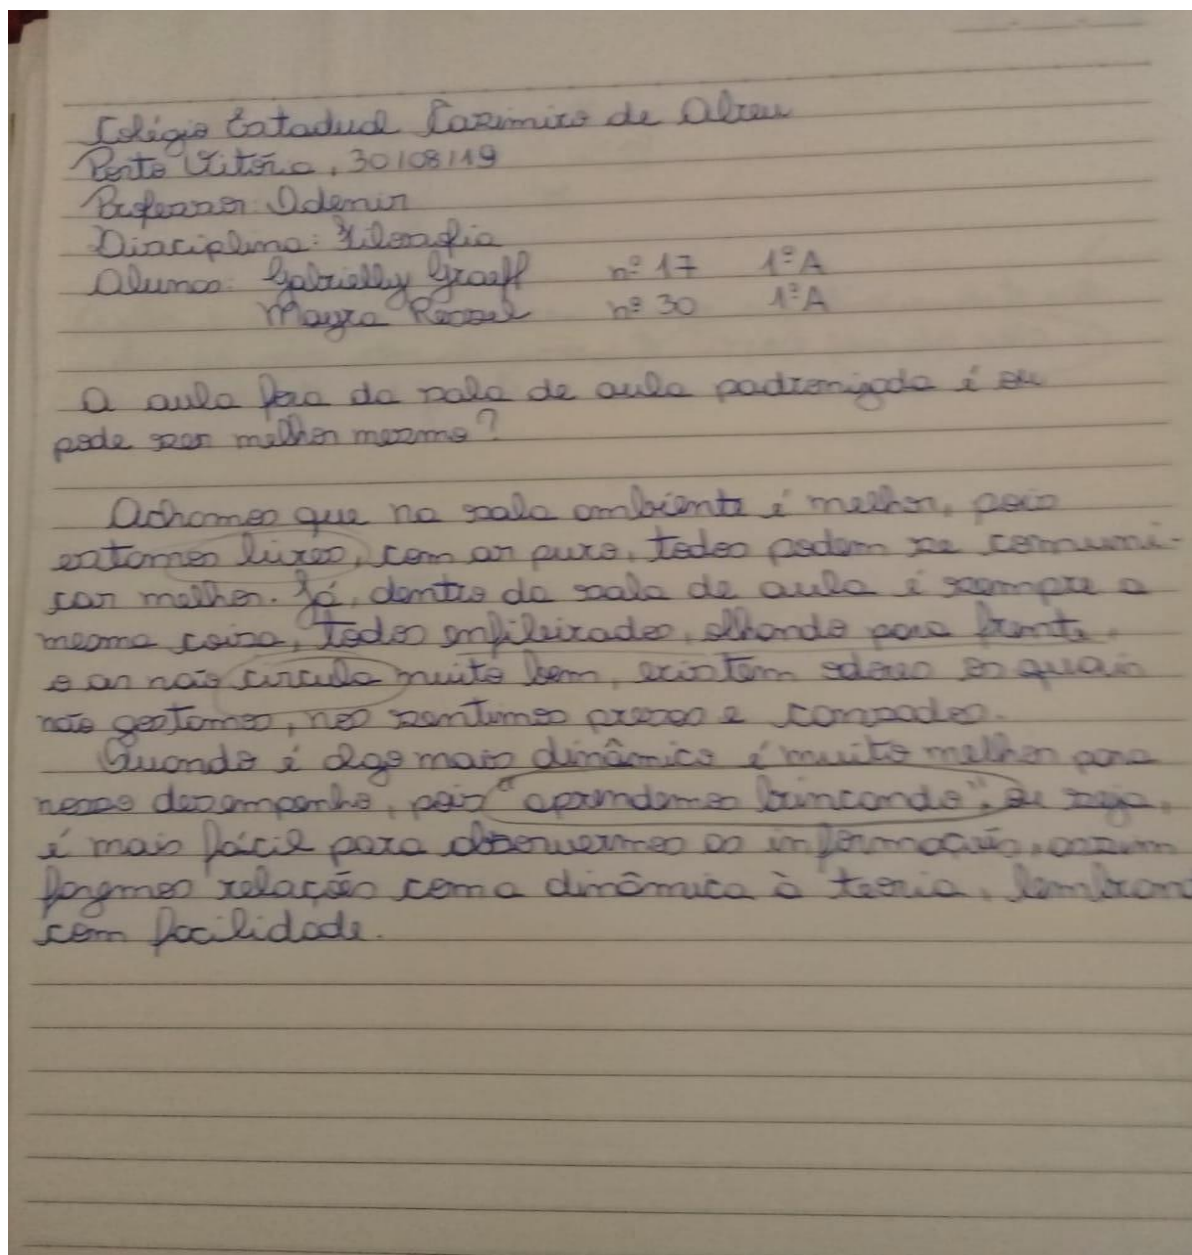 Colégio Estadual Casimiro de Abreu
Porto Vitória, 30/08/19
Professor: Ademir
Disciplina: Filosofia
Alunas: Gabrielly Graeff nº 17 1º A
Mayra nº 30 1º A
A aula fora da sala de aula padronizada é ou
pode ser melhor mesmo?
Achamos que na sala ambiente é melhor, pois
estamos livres, com ar puro, todos podem se comuni-
car melhor. Já, dentro da sala de aula é sempre a
mesma coisa, todos enfileirados, olhando para frente,
o ar não circula muito bem, existem odores os quais
não gostamos, nos sentimos presos e cansados.
Quando é algo mais dinâmico é muito melhor para
nosso desempenho, pois "aprendemos brincando", ou seja,
é mais fácil para absorvermos as informações, assim
fazemos relações com a dinâmica à teoria,
com facilidade.